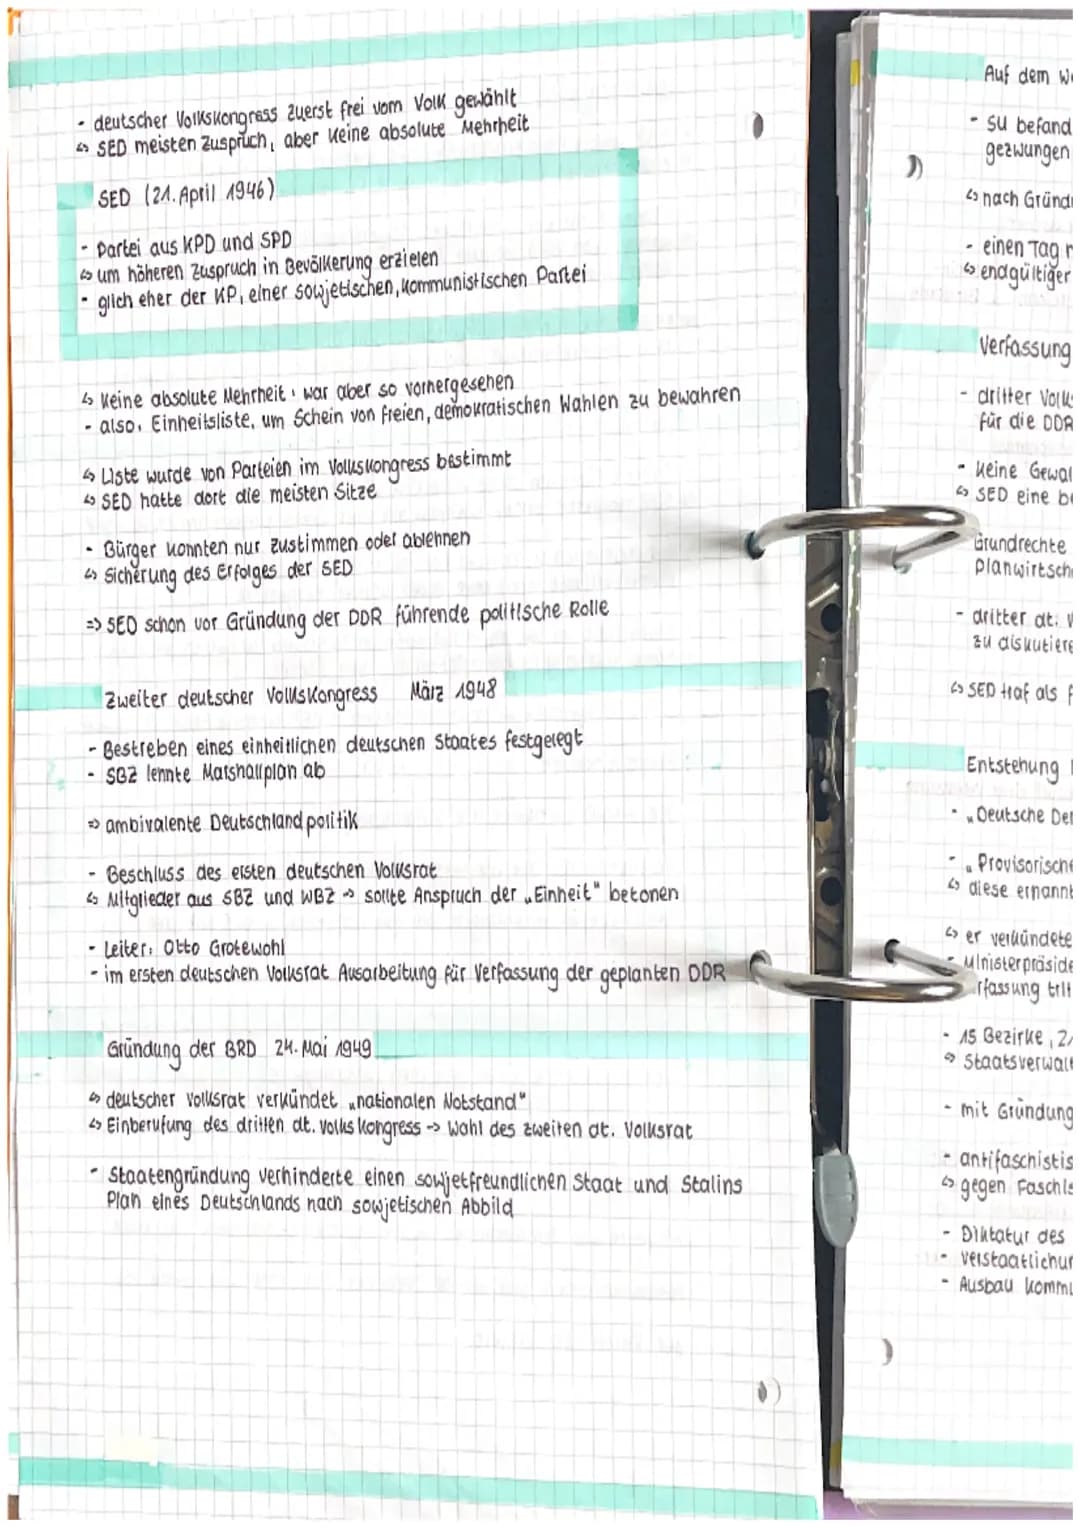 - deutscher Volkskongress zuerst frei vom Volk gewählt
↳ SED meisten Zuspruch, aber keine absolute Mehrheit
SED (21. April 1946)
- Partei aus KPD und SPD
↳ um höheren Zuspruch in Bevölkerung erzielen
- glich eher der KP, einer sowjetischen, kommunistischen Partei
↳ keine absolute Mehrheit, war aber so vorhergesehen
- also: Einheitsliste, um Schein von freien, demokratischen Wahlen zu bewahren
↳ Liste wurde von Parteien im Volkskongress bestimmt
↳ SED hatte dort die meisten Sitze
- Bürger konnten nur zustimmen oder ablehnen
↳ Sicherung des Erfolges der SED
=> SED schon vor Gründung der DDR führende politische Rolle
Zweiter deutscher Volkskongress März 1948
- Bestreben eines einheitlichen deutschen Staates festgelegt
- SBZ lehnte Marshallplan ab
=> ambivalente Deutschlandpolitik
- Beschluss des ersten deutschen Volksrat
↳ Mitglieder aus SBZ und WBZ -> sollte Anspruch der „Einheit" betonen
- Leiter: Otto Grotewohl
- im ersten deutschen Volksrat Ausarbeitung für Verfassung der geplanten DDR
Gründung der BRD 24. Mai 1949
↳ deutscher Volksrat verkündet „nationalen Notstand"
↳ Einberufung des dritten dt. Volkskongress -> Wahl des zweiten dt. Volksrat
- Staatengründung verhinderte einen sowjetfreundlichen Staat und Stalins
Plan eines Deutschlands nach sowjetischen Abbild
Auf dem
- SU befand
gezwungen
↳ nach
- einen Tag
↳ endgültiger
Verfassung
- dritter
für die DDR
- keine
↳ SED eine
Grundrechte
- dritter dt.
zu
↳ SED traf als
Entstehung
- „Deutsche
- „Provisorische
↳ diese
↳ er verkündete
- 15 Bezirke,
- mit Gründung
↳ gegen
- Diktatur des
- Ausbau